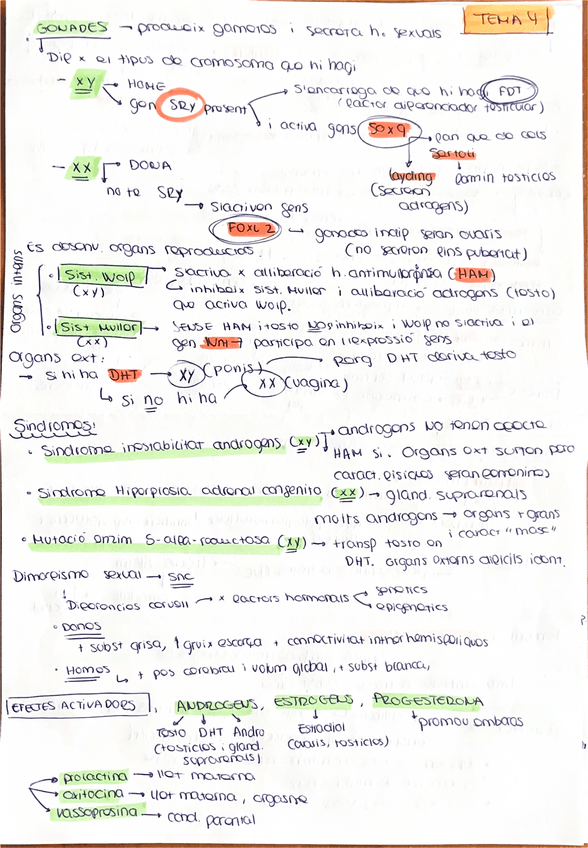 TEMA 4
GONADES → produeix gametos i secreta h. sexuals
Dep x el tipus de cromosoma que hi hagi
- XY → HOME
→ gen SRY present → s'encarrega de que hi hagi FDT
(factor diferenciador testicular)
→ i activa gens SOX9 → fan que de cels
Sertoli
leyding → formin testicles
(secreten
adrogens)
- XX → DONA
no te SRY
→ s'activen gens
FOXL2 → gonades indif seran ovaris
(no secreten fins pubertat)
Es desenv. organs reproductors:
Organs interns
• Sist. Wolf → s'activa x alliberació h. antimulleriana (HAM)
(XY) → inhibeix sist. Muller i alliberació adrogens (testo)
que activa Wolf.
• Sist Muller → SENSE HAM i testo NO s'inhibeix i Wolf no s'activa i el
(XX) gen Wnt-7 participa en l'expressió gens
Organs ext:
→ si hi ha DHT → XY (penis) → perq DHT deriva testo
↳ si no hi ha → XX (vagina)
Sindromes:
• Sindrome inestabilitat androgens (XY) → androgens NO tenen efecte
HAM si. Organs ext surten pero
caract. fisiques seran femenines
• Sindrome Hiperplasia adrenal congenita (XX) → gland. suprarenals
molts androgens → organs + grans
i caract "masc"
• Mutació enzim 5-alfa-reductasa (XY) → transf testo en
DHT. organs externs dificils ident.
Dimorfismo sexual → SNC
↓ Diferencies cervell → x factors hormonals < genetics
epigenetics
• Dones
+ subst grisa, ↑ gruix escorça + connectivitat interhemisferiques
• Homes
↳ + pes cerebral i volum global, + subst blanca,
EFECTES ACTIVADORS
ANDROGENS, ESTROGENS, PROGESTERONA
↳ promou embaras
Testo DHT Andro
(testicles i gland.
suprarenals)
Estradiol
(ovaris, testicles)
→ prolactina → llet materna
→ oxitocina → llet materna, orgasme
→ vassopresina → cond. parental